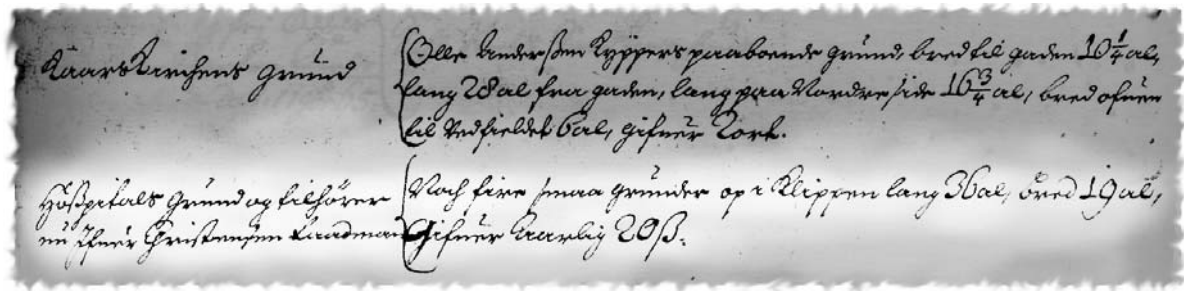 KaarsKirchens grund
Olle Anderßen Kyppers paaboende grund, bred til gaden 10 1/4 al,
lang 28 al fra gaden, lang paa Nordre side 16 3/4 al, bred ofuen
til Vedfieldet 6 al, gifuer Kort.
Hoßpitals grund og tilhörer
nu Ifuer Christensen Laadman
Noch fire smaa grunder op i Klippen lang 36 al, bred 19 al,
Gifuer aarlig 20 ß.